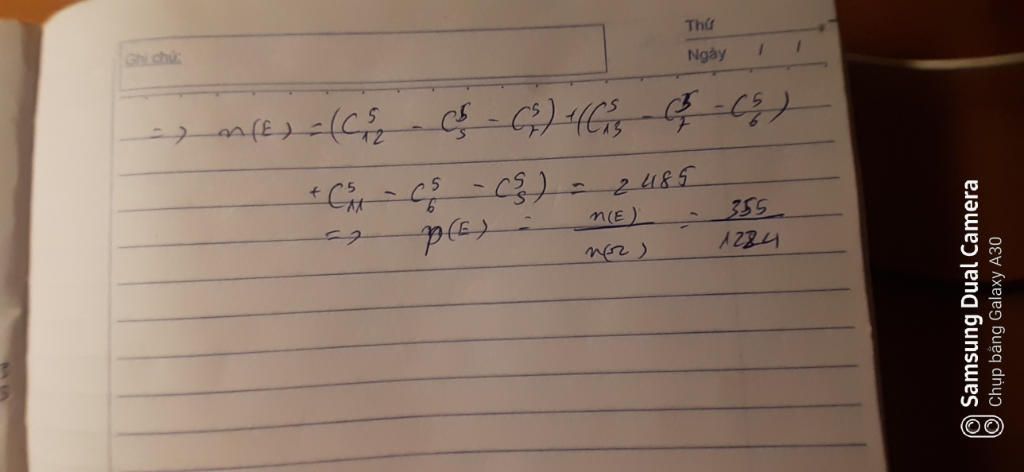 Thứ
Ghi chú:
Ngày / /
=> n(E) = (C₁₂⁵ - C₅⁵ - C₇⁵) + (C₁₃⁵ - C₇⁵ - C₆⁵)
+ C₁₁⁵ - C₆⁵ - C₅⁵) = 2485
=> p(E) = n(E)/n(Ω) = 355/1224
Samsung Dual Camera
Chụp bằng Galaxy A30